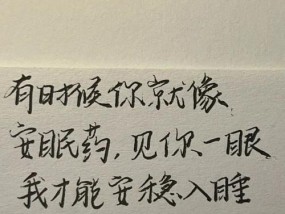 有时候你就像
安眠药,见你一眼
我才能安稳入睡